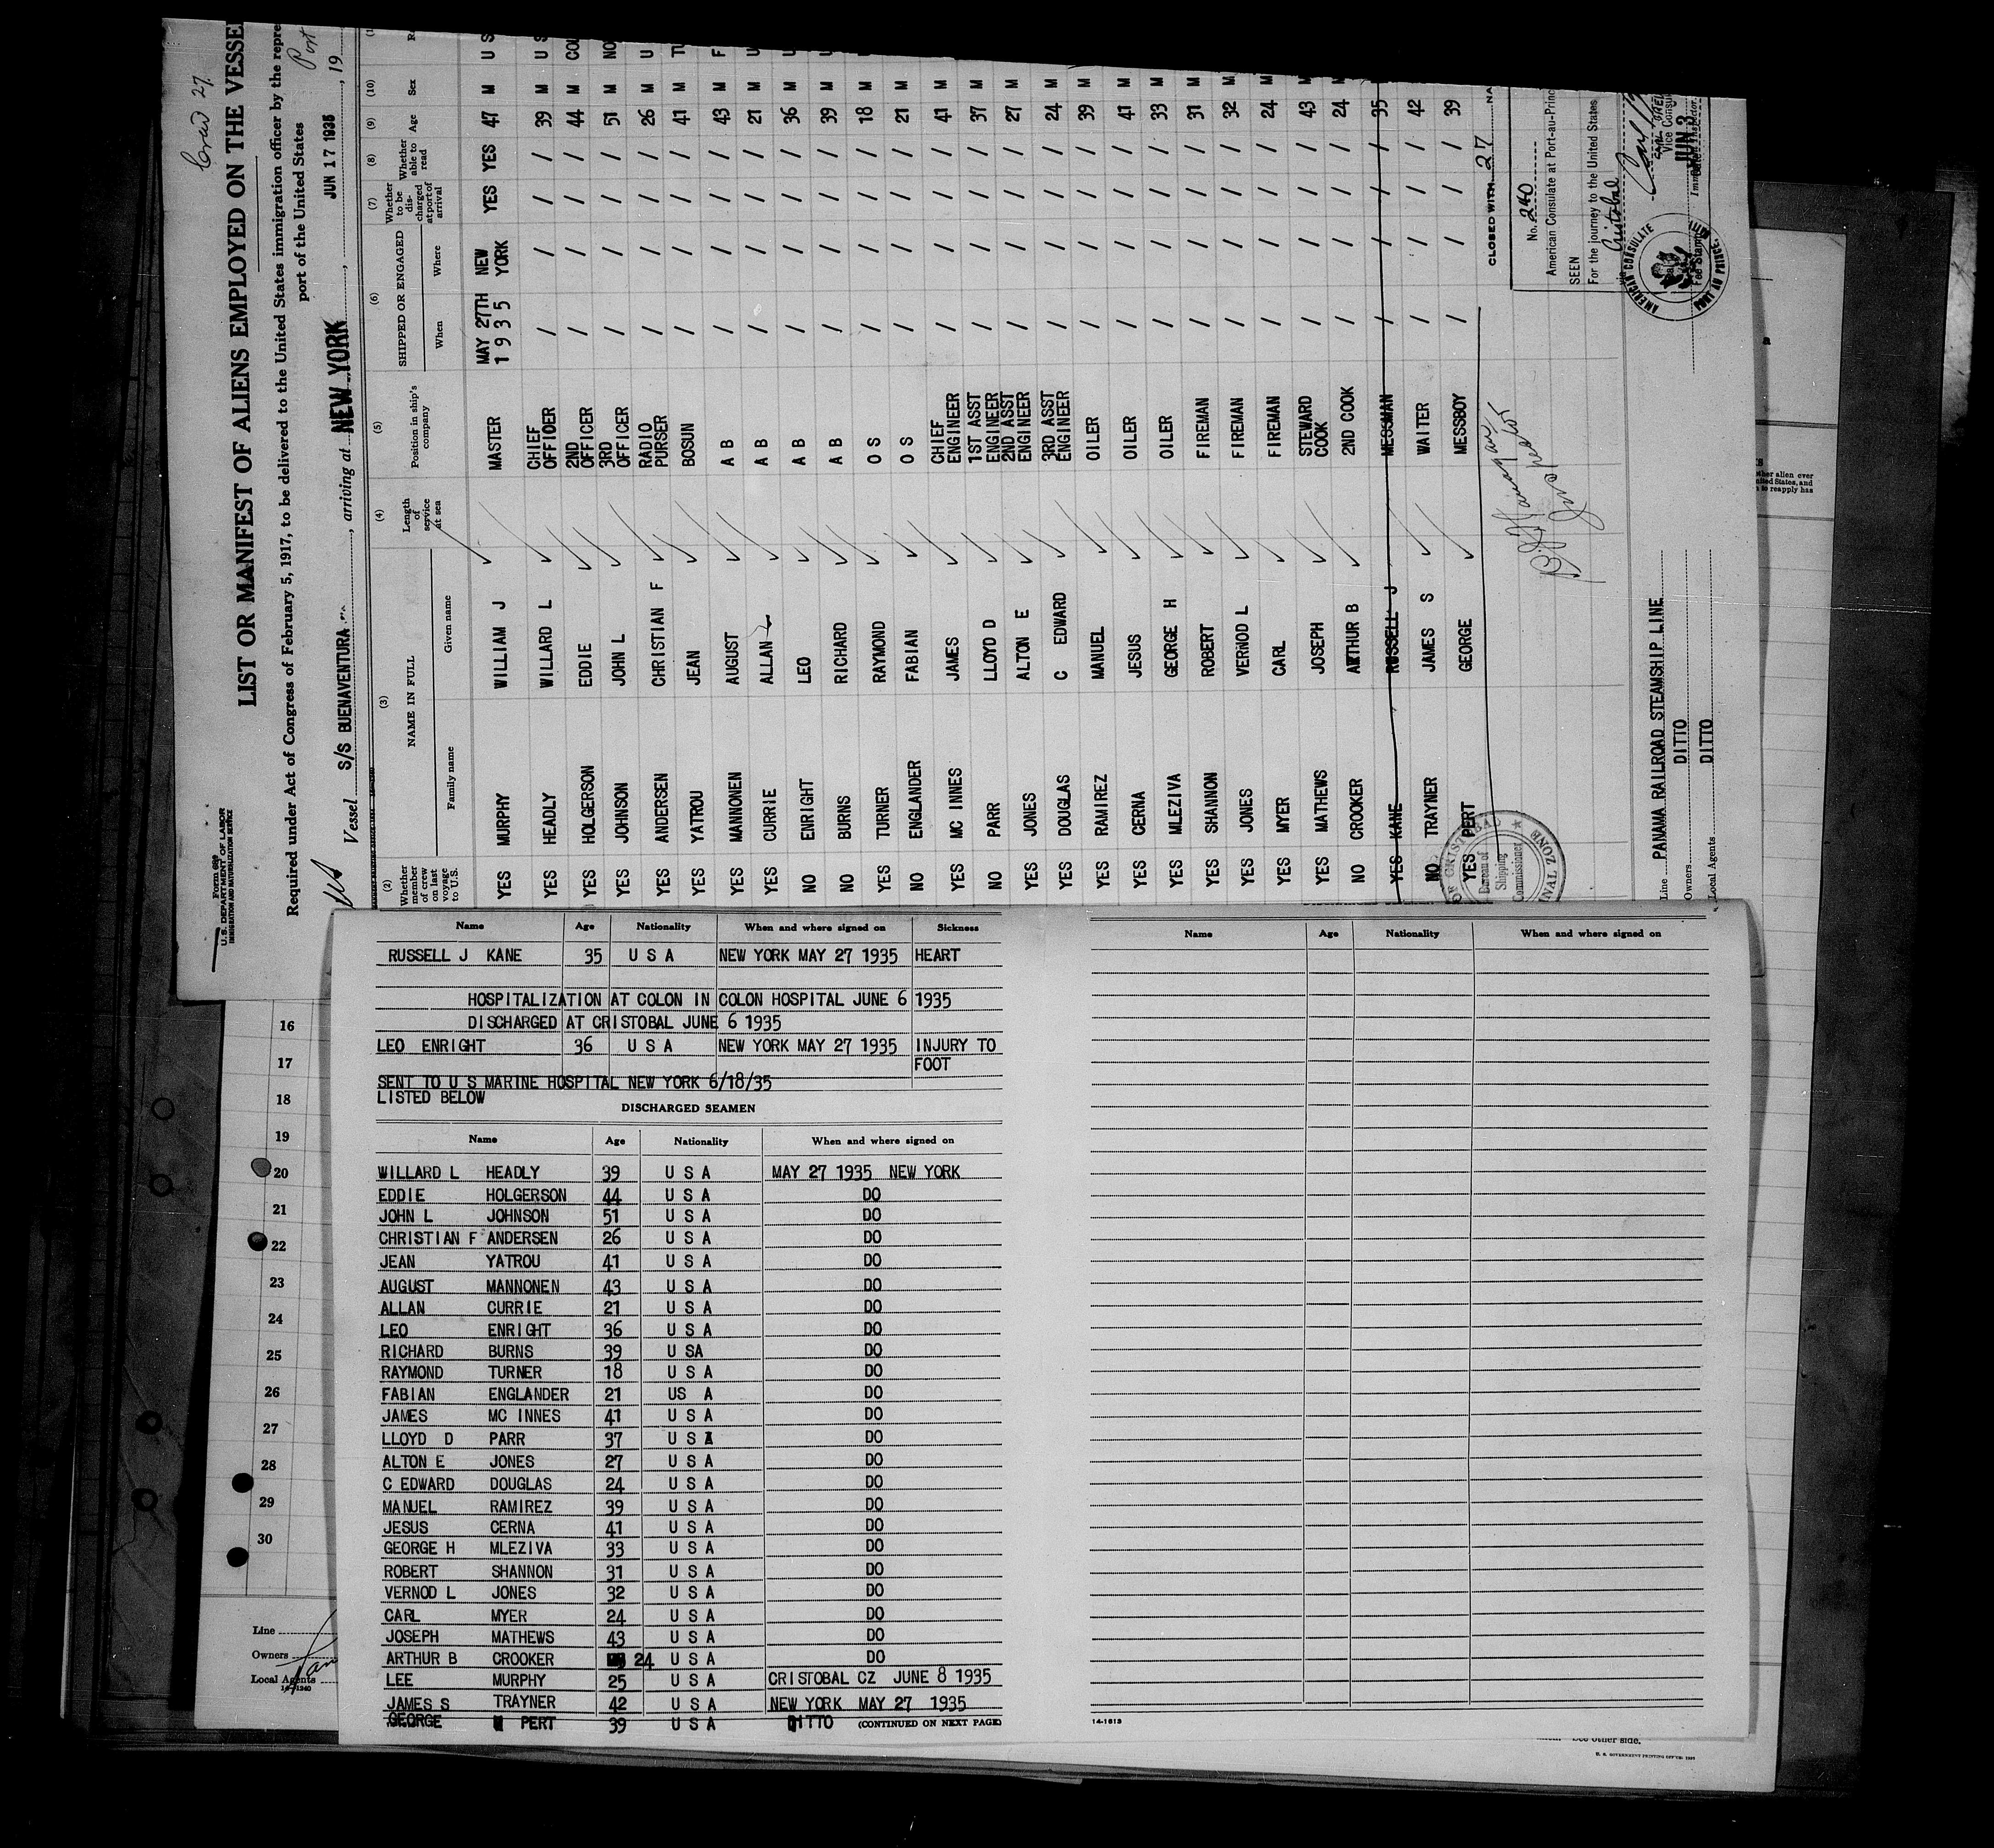 Crew 27.
Form 689
U. S. DEPARTMENT OF LABOR
IMMIGRATION AND NATURALIZATION SERVICE
LIST OR MANIFEST OF ALIENS EMPLOYED ON THE VESSE
Required under Act of Congress of February 5, 1917, to be delivered to the United States immigration officer by the repre
port of the United States Port
Vessel S/S BUENAVENTURA, arriving at NEW YORK, JUN 17 1935, 19
(2) (3) (4) (5) (6) (7) (8) (9) (10)
Whether member of crew on last voyage to U.S. NAME IN FULL Family name Given name Length of service at sea Position in ship's company SHIPPED OR ENGAGED When Where Whether to be discharged at port of arrival Whether able to read Age Sex
YES MURPHY WILLIAM J MASTER MAY 27TH 1935 NEW YORK YES YES 47 M U S
YES HEADLY WILLARD L CHIEF OFFICER / / / / 39 M U S
YES HOLGERSON EDDIE 2ND OFFICER / / / / 44 M
YES JOHNSON JOHN L 3RD OFFICER / / / / 51 M
YES ANDERSEN CHRISTIAN F RADIO PURSER / / / / 26 M U
YES YATROU JEAN BOSUN / / / / 41 M
YES MANNONEN AUGUST A B / / / / 43 M F
YES CURRIE ALLAN A B / / / / 21 M U
NO ENRIGHT LEO A B / / / / 36 M
NO BURNS RICHARD A B / / / / 39 M
YES TURNER RAYMOND O S / / / / 18 M
NO ENGLANDER FABIAN O S / / / / 21 M
YES MC INNES JAMES CHIEF ENGINEER / / / / 41 M
NO PARR LLOYD D 1ST ASST ENGINEER / / / / 37 M
YES JONES ALTON E 2ND ASST ENGINEER / / / / 27 M
YES DOUGLAS C EDWARD 3RD ASST ENGINEER / / / / 24 M
YES RAMIREZ MANUEL OILER / / / / 39 M
YES CERNA JESUS OILER / / / / 41 M
YES MLEZIVA GEORGE H OILER / / / / 33 M
YES SHANNON ROBERT FIREMAN / / / / 31 M
YES JONES VERNOD L FIREMAN / / / / 32 M
YES MYER CARL FIREMAN / / / / 24 M
YES MATHEWS JOSEPH STEWARD COOK / / / / 43 M
NO CROOKER ARTHUR B 2ND COOK / / / / 24 M
YES KANE RUSSELL J MESSMAN / / / / 35
NO TRAYNER JAMES S WAITER / / / / 42
YES PERT GEORGE MESSBOY / / / / 39
CLOSED WITH 27 NA
No. 240
American Consulate at Port-au-Princ
SEEN
For the journey to the United States
via Cristobal
Vice Consul
JUN 3
Immigrant Inspector.
Fee Stamp
AMERICAN CONSULATE
PORT AU PRINCE
Inspector
Bureau of
Shipping
Commissioner
Line PANAMA RAILROAD STEAMSHIP LINE
Owners DITTO
Local Agents DITTO
Name Age Nationality When and where signed on Sickness
RUSSELL J KANE 35 U S A NEW YORK MAY 27 1935 HEART
HOSPITALIZATION AT COLON IN COLON HOSPITAL JUNE 6 1935
DISCHARGED AT CRISTOBAL JUNE 6 1935
LEO ENRIGHT 36 U S A NEW YORK MAY 27 1935 INJURY TO
FOOT
SENT TO U S MARINE HOSPITAL NEW YORK 6/18/35
LISTED BELOW
DISCHARGED SEAMEN
Name Age Nationality When and where signed on
WILLARD L HEADLY 39 U S A MAY 27 1935 NEW YORK
EDDIE HOLGERSON 44 U S A DO
JOHN L JOHNSON 51 U S A DO
CHRISTIAN F ANDERSEN 26 U S A DO
JEAN YATROU 41 U S A DO
AUGUST MANNONEN 43 U S A DO
ALLAN CURRIE 21 U S A DO
LEO ENRIGHT 36 U S A DO
RICHARD BURNS 39 U SA DO
RAYMOND TURNER 18 U S A DO
FABIAN ENGLANDER 21 US A DO
JAMES MC INNES 41 U S A DO
LLOYD D PARR 37 U S A DO
ALTON E JONES 27 U S A DO
C EDWARD DOUGLAS 24 U S A DO
MANUEL RAMIREZ 39 U S A DO
JESUS CERNA 41 U S A DO
GEORGE H MLEZIVA 33 U S A DO
ROBERT SHANNON 31 U S A DO
VERNOD L JONES 32 U S A DO
CARL MYER 24 U S A DO
JOSEPH MATHEWS 43 U S A DO
ARTHUR B CROOKER 24 U S A DO
LEE MURPHY 25 U S A CRISTOBAL CZ JUNE 8 1935
JAMES S TRAYNER 42 U S A NEW YORK MAY 27 1935
GEORGE PERT 39 U S A DITTO (CONTINUED ON NEXT PAGE)
Name Age Nationality When and where signed on
14-1613
16
17
18
19
20
21
22
23
24
25
26
27
28
29
30
Line
Owners
Local Agents
14-1240
ther alien ever
nited States, and
to reapply has
See other side.
U. S. GOVERNMENT PRINTING OFFICE